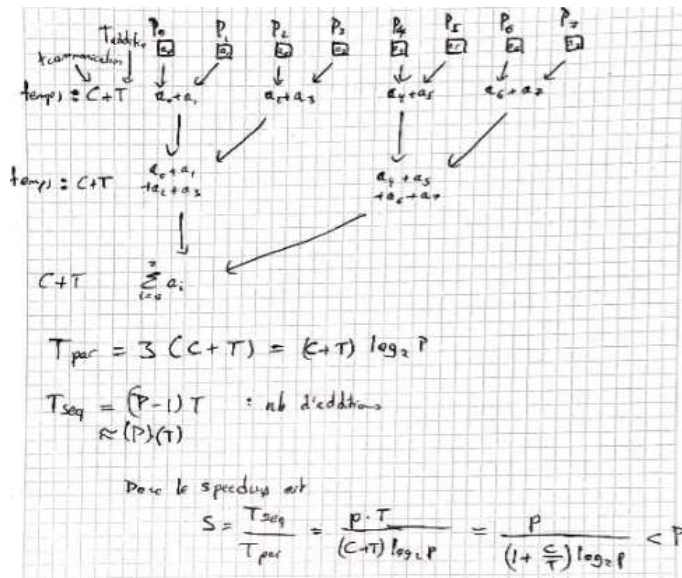 T addition P₀ P₁ P₂ P₃ P₄ P₅ P₆ P₇
t communication a₀ a₁ a₂ a₃ a₄ a₅ a₆ a₇
temps : C+T a₀+a₁ a₂+a₃ a₄+a₅ a₆+a₇
temps : C+T a₀+a₁ +a₂+a₃ a₄+a₅ +a₆+a₇
C+T Σ aᵢ
T par = 3 (C+T) = (C+T) log₂ P
T seq = (P-1) T : nb d'additions
≈ (P)(T)
Donc le speedup est
S = T seq / T par = p·T / (C+T) log₂ p = P / (1 + C/T) log₂ p < P